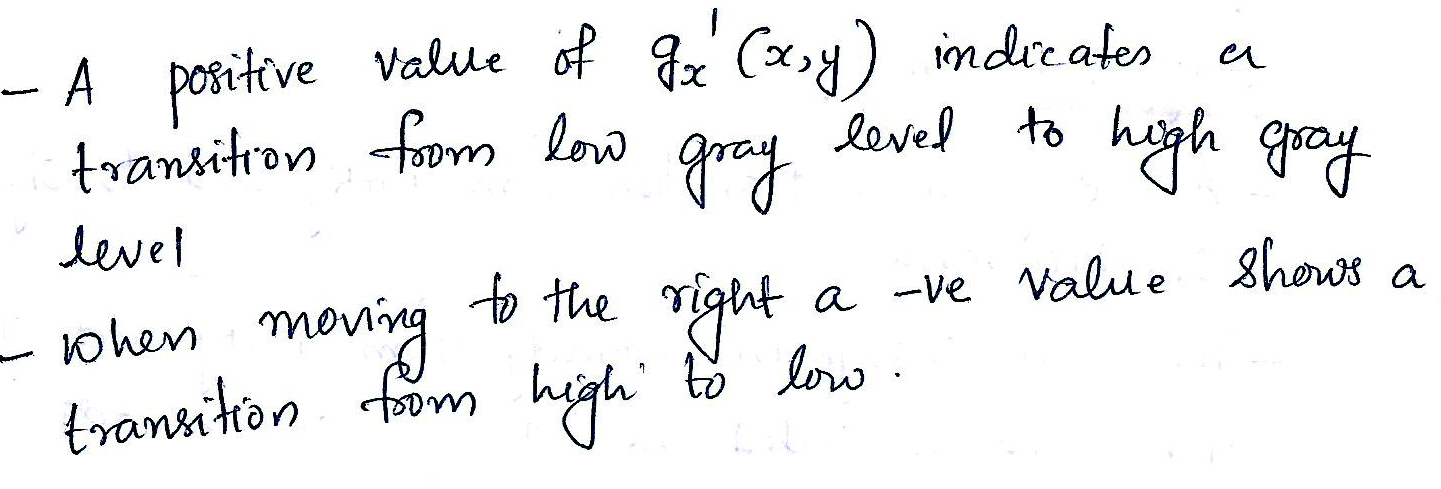 - A positive value of gx'(x,y) indicates a
transition from low gray level to high gray
level
- when moving to the right a -ve value shows a
transition from high to low.